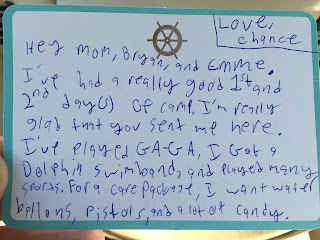 Love,
chance
Hey mom, Bryan, and Emme.
I've had a really good 1st and
2nd day(s) of camp. I'm really
glad that you sent me here.
I've played GA-GA, I Got a
Dolphin swimband, and played many
sports. For a care package, I want water
ballons, pistols, and a lot of candy.